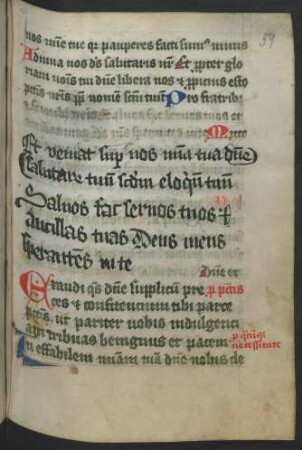 59
nos mie tue q̄ pauperes facti sum⁹ nimis
Adiuua nos d̄s salutaris nr̄ Et ꝓpter glo
riam nois tui dn̄e libera nos ⁊ ꝓpicius esto
pctis nr̄is ꝓpt nomē tuū Pro fratrib⁹
Et veniat sup nos mīa tua dn̄e
Salutare tuū scdm eloqū tuū
Saluos fac seruos tuos ⁊
ancillas tuas Deus meus
sperantes in te
Dn̄e ex
Exaudi q̄s dn̄e supplicū pre
ꝓ pctis
ces ⁊ confitentium tibi parce
pctis, ut pariter nobis indulgenti
am tribuas benignus et pacem
ꝓ
necessitate
Ineffabilem mīam tuā dn̄e nobis